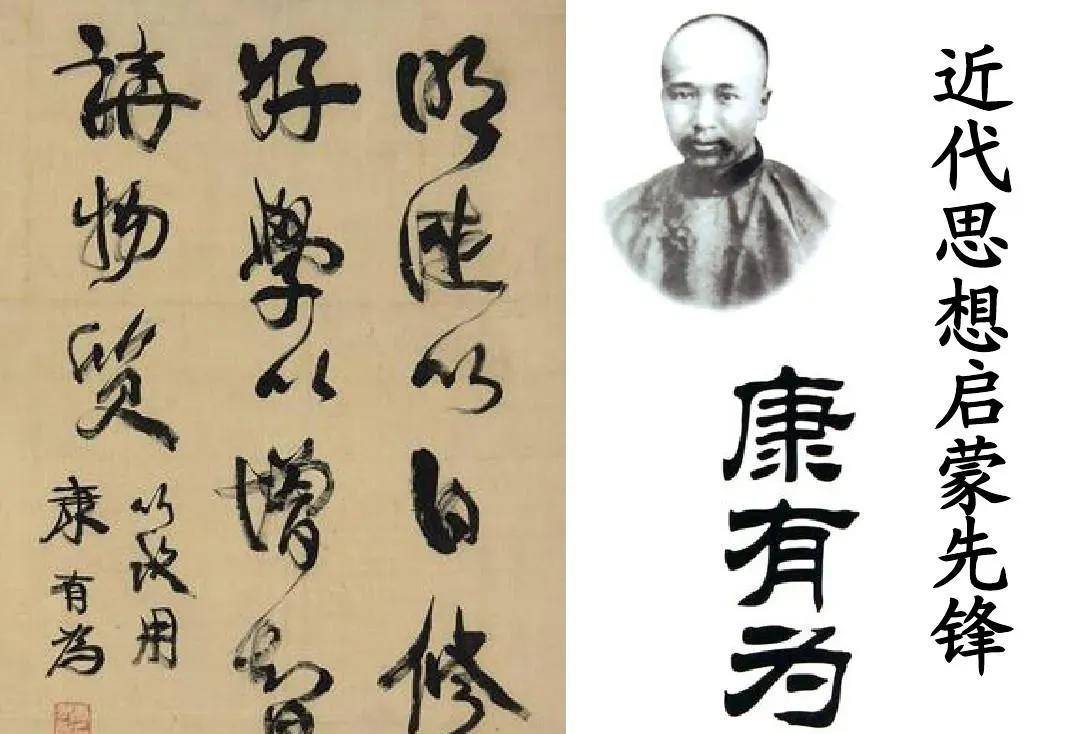 明以自修
好學以增智
講物質
以致用
康有為
近代思想启蒙先锋
康有为